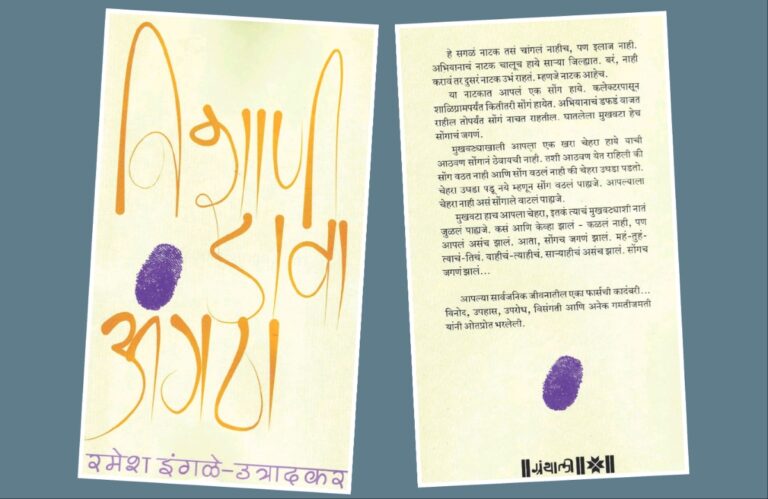 निशाणी
डावा
अंगठा
रमेश इंगळे-उत्रादकर
हे सगळं नाटक तसं चांगलं नाहीच, पण इलाज नाही.
अभियानाचं नाटक चालूच हाये साऱ्या जिल्ह्यात. बरं, नाही
करावं तर दुसरं नाटक उभं राहतं. म्हणजे नाटक आहेच.
या नाटकात आपलं एक सोंग हाये. कलेक्टरपासून
शाळिग्रामपर्यंत कितीतरी सोंगं हायेत. अभियानाचं डफडं वाजत
राहील तोपर्यंत सोंगं नाचत राहतील. घातलेला मुखवटा हेच
सोंगाचं जगणं.
मुखवट्याखाली आपला एक खरा चेहरा हाये याची
आठवण सोंगानं ठेवायची नाही. तशी आठवण येत राहिली की
सोंग वठत नाही आणि सोंग वठलं नाही की चेहरा उघडा पडतो.
चेहरा उघडा पडू नये म्हणून सोंग वठलं पाह्यजे. आपल्याला
चेहरा नाही असं सोंगाले वाटलं पाह्यजे.
मुखवटा हाच आपला चेहरा, इतकं त्याचं मुखवट्याशी नातं
जुळलं पाह्यजे. कसं आणि केव्हा झालं - कळलं नाही, पण
आपलं असंच झालं. आता, सोंगच जगणं झालं. महं-तुहं-
त्याचं-तिचं. याहीचं-त्याहीचं. साऱ्याहीचं असंच झालं. सोंगच
जगणं झालं...
आपल्या सार्वजनिक जीवनातील एका फार्सची कादंबरी...
विनोद, उपहास, उपरोध, विसंगती आणि अनेक गमतीजमती
यांनी ओतप्रोत भरलेली.
॥ग्रंथाली॥